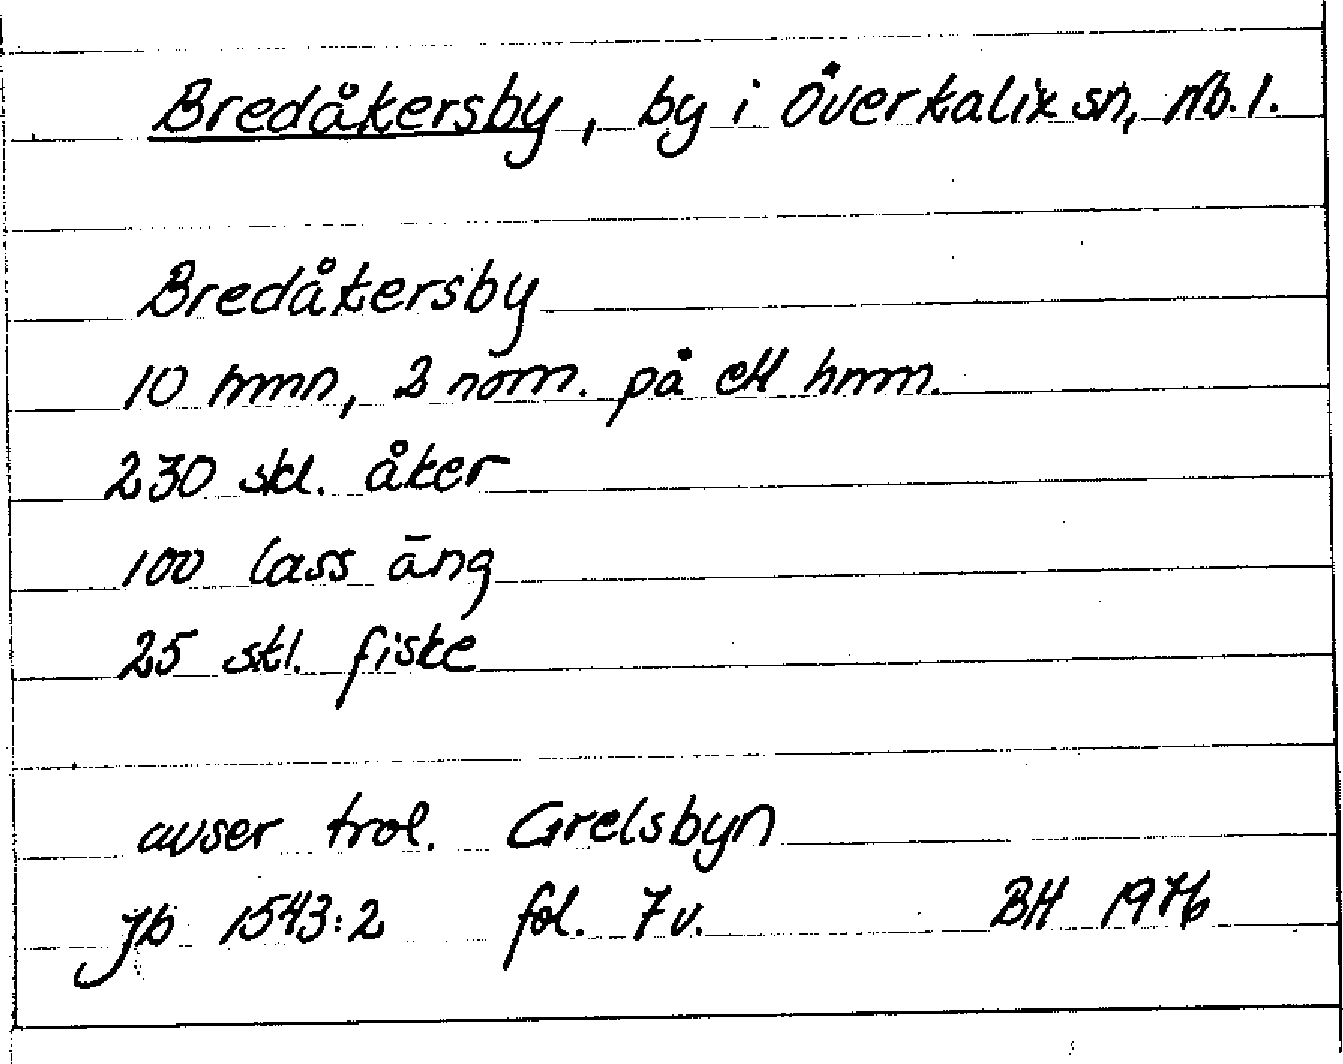 Bredåkersby, by i Överkalix sn, Nb. l.
Bredåkersby
10 hmn, 2 nom. på ett hmm.
230 skl. åker
100 lass äng
25 skl. fiske
avser trol. Grelsbyn
Jb 1543:2 fol. 7v. BH 1976